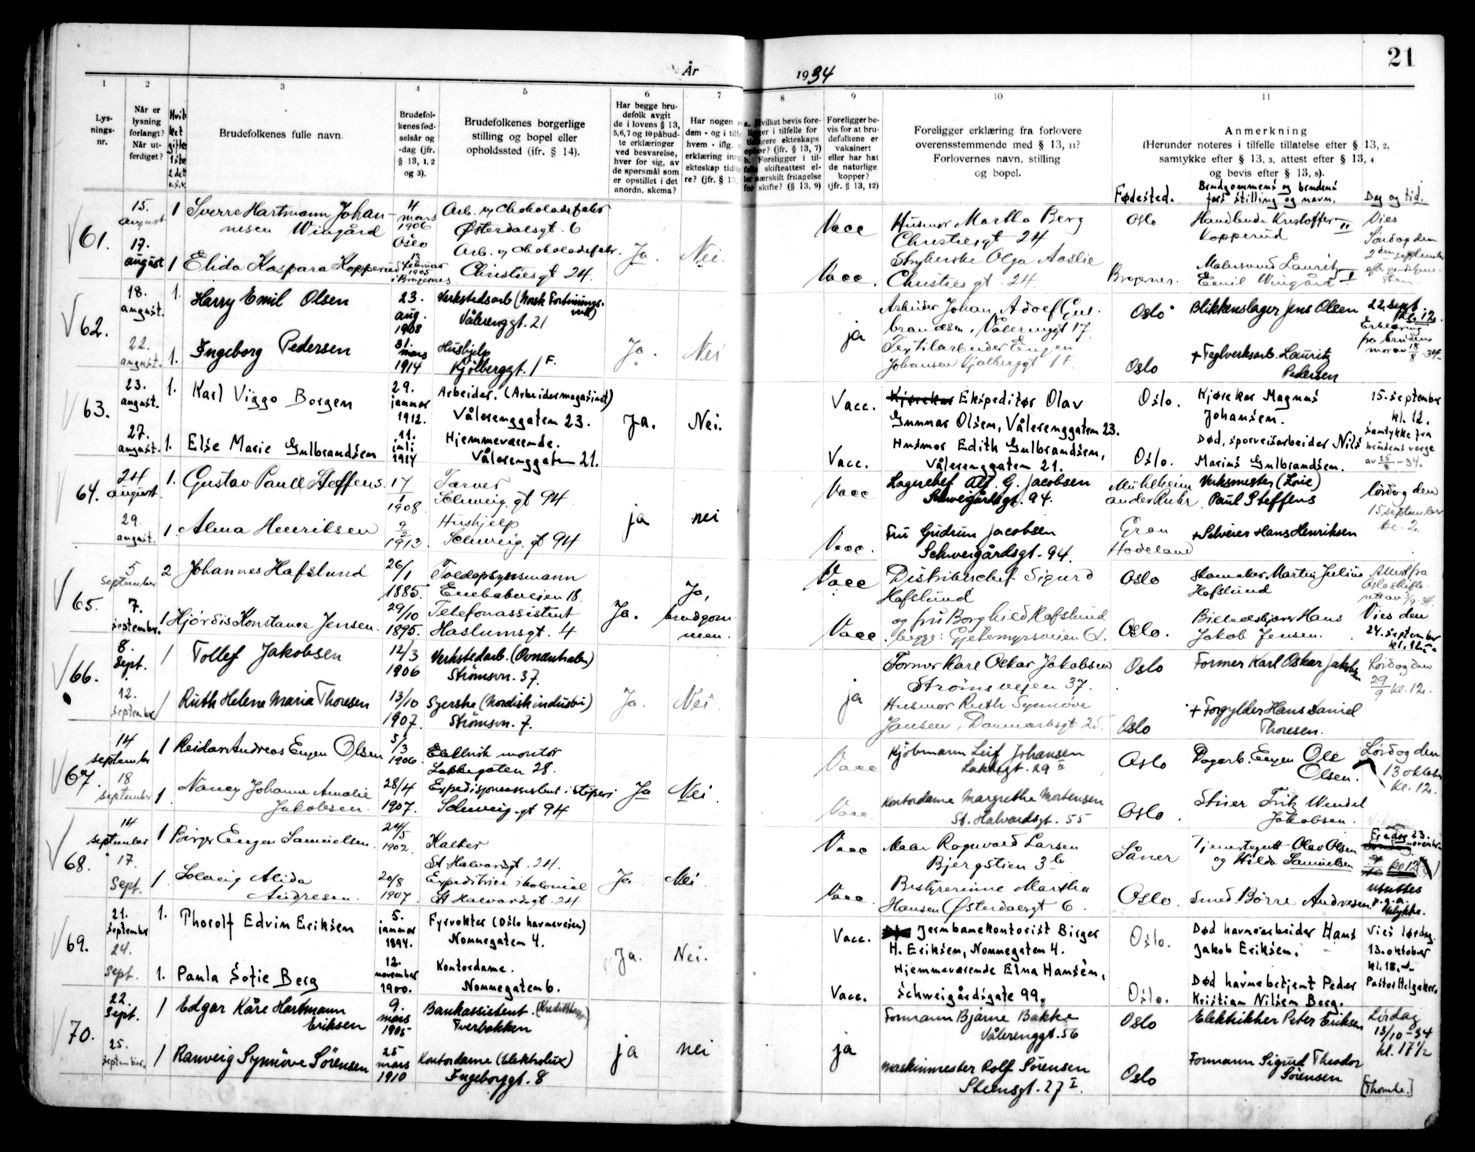 21
År 1934
1 2 3 4 5 6 7 8 9 10 11
Lys-
nings-
nr.
Når er
lysning
forlangt?
Når ut-
ferdiget?
Brudefolkenes fulle navn.
Brudefol-
kenes fød-
selsår og
-dag (jfr.
§ 13, 1, 2
og 3).
Brudefolkenes borgerlige
stilling og bopel eller
opholdssted (ifr. § 14).
Har begge bru-
defolk avgitt
de i lovens § 13,
5, 6, 7 og 10 påbud-
te erklæringer
ved besvarelse,
hver for sig, av
de spørsmål som
er opstillet i det
anordn. skema?
Har nogen
Foreligger be-
vis for at bru-
defolkene er
vaksinert
eller har hat
de naturlige
kopper?
(jfr. § 13, 12)
Foreligger erklæring fra forlovere
overensstemmende med § 13, 11?
Forlovernes navn, stilling
og bopel.
Anmerkning
(Herunder noteres i tilfelle tillatelse efter § 13, 2,
samtykke efter § 13, 3, attest efter § 13, 4
og bevis efter § 13, 8).
Fødested. Brudgommens og brudens
fars stilling og navn. Dag og tid.
61.
15. august
17. august
1 Sverre Hartmann Johan
nesen Wingård
4 mars 1906
Oslo
Arb. v/ Chokoladefabr.
Østerdalsgt. 6
Ja. Nei.
Vacc
Husmor Martha Berg
Christiesgt 24
Oslo
Handlende Kristoffer
Kopperud II
1 Elida Kaspara Kopperud
1905
Arb. v/ Chokoladefabr.
Christiesgt 24.
Vacc.
Olga Aaslie
Christiesgt. 24.
Lauritz
Emil Wingård I
Vies
Søndag den
2den september
62.
18. august.
22. august.
1. Harry Emil Olsen
23. aug. 1908
Verkstedsarb (Norsk Fortinnings-
verk)
Vålerenggt. 21
Ja. Nei
ja
Arbeider Johan Adolf Gul-
brandsen, Vålerenggt 17.
Oslo
Blikkenslager Jens Olsen
22. sept
kl. 12
1. Ingeborg Pedersen
31. mars 1914
Hushjelp
Kjølberggt. 1 F.
Textilarbeider Eugen
Johansen Kjølberggt 1 F.
Oslo
+ Teglverksarb. Lauritz
Pedersen
Erklæring
fra brudens
mor av 18/8-34.
63.
23. august.
27. august.
1. Karl Viggo Borgen
29. januar 1912.
Arbeider. (Arbeidermagasinet)
Vålerenggaten 23.
Ja. Nei.
Vacc.
Ekspeditør Olav
Gunnar Olsen, Vålerenggaten 23.
Oslo.
Kjørekar Magnus
Johansen.
15. september
kl. 12.
1. Else Marie Gulbrandsen
11. juli 1914
Hjemmeværende.
Vålerenggaten 21.
Vacc.
Husmor Edith Gulbrandsen,
Vålerenggaten 21.
Oslo.
Død, sporveisarbeider Nils
Marius Gulbrandsen.
Samtykke fra
brudens verge
av 25/8-34.
64.
24 august.
29. august.
1. Gustav Paull Steffens
17/1 1908
Farver
Schweig.gt 94
ja nei
Vacc
Lagerchef Alf. G. Jacobsen
Schweigårdsgt. 94.
Mühlheim
an der Ruhr
Verksmester (Loie)
Paul Steffens
Lørdag den
15 september
kl. 2
1 Alma Henriksen
9/2 1913
Hushjelp
Schweig.gt 94
Vacc.
Fru Gudrun Jacobsen
Schweigårdsgt. 94.
Gran
Hadeland
+ Hans Henriksen
65.
5 september
7. september.
2 Johannes Hafslund
26/1 1885.
Toldopsynsmann
Enebakveien 18.
Ja. Ja,
brudgom
men.
Vacc
Distriktschef Sigurd
Hafslund
Oslo
Skomaker Martin Julius
Hafslund
Attest fra
Oslo skifte-
rett av
1 Hjørdis Konstance Jensen.
29/10 1895.
Telefonassistent
Haslumsgt. 4
Vacc
og fru Borghild Hafslund
begge: Gjetemyrsveien 6
Oslo.
Hans
Jakob Jensen.
Vies den
24. september
kl. 12
66.
8. sept.
12. september
1 Tollef Jakobsen
12/3 1906
Verkstedarb. (Ovnenthalen)
Strømsvn. 37.
Ja. Nei.
ja
Former Karl Oskar Jakobsen
Strømsveien 37.
Oslo
Former Karl Oskar Jakobsen
Lørdag den
29/9 kl. 12.
1 Ruth Helene Maria Thoresen
13/10 1907.
Syerske (Nordisk industri)
Strømsvn. 7.
Husmor Ruth Synnøve
Jansen, Danmarksgt 25.
Oslo
+ Forgylder Hans Daniel
Thoresen.
67.
14 september
18 september
1 Reidar Andreas Eugen Olsen
/3 1906
Elektrisk montør
Lakkegaten 28.
Ja Nei.
Vacc
Kjøbmann Leif Johansen
Lakkegt. 29 II
Oslo
Eugen Ole
Olsen.
Lørdag den
13 oktober
kl. 12.
1. Nancy Johanne Amalie
Jakobsen.
28/4 1907.
Schweig.gt 94
Vacc.
Kontordame Margrethe Mortensen
St. Halvardsgt. 55
Oslo.
Fritz Wendel
Jakobsen.
68.
14 september
17. Sept.
1 Birger Eugen Samuelsen
24/5 1902.
Kalker
St Halvardsgt. 24.
Ja Nei
Vacc
Maler Rognvald Larsen
Bjergstien 3 b
Såner
Olav Olsen
og Hilda Samuelsen
Fredag 23.
november
kl 12
1. Solveig Alida
Andresen.
20/8 1907.
St Halvardsgt 24
Vacc.
Bestyrerinne Martha
Hansen Østerdalsgt 6.
Oslo.
Smed Børre Andresen
utsettes
p.g.a.
ulykke.
69.
21. september
24. Sept.
1. Thorolf Edvin Eriksen
5. januar 1894.
Fyrvokter (Oslo havnevesen)
Nonnegaten 4.
Ja. Nei.
Vacc.
Jernbanekontorist Birger
H. Eriksen, Nonnegaten 4.
Oslo.
Død havnearbeider Hans
Jakob Eriksen.
Vies lørdag.
13. oktober
kl. 18.
1. Paula Sofie Berg
12. november 1900.
Kontordame.
Nonnegaten 6.
Vacc.
Hjemmeværende Elna Hansen,
Schweigårdsgate 99.
Oslo.
Død havnebetjent Peder
Kristian Nilsen Berg.
Pastor Helgaker.
70.
22. Sept.
25. september.
1 Edgar Kåre Hartmann
Eriksen
9. mars 1905
Bankassistent.
Tverbakken
ja nei
ja
Formann Bjarne Bakke
Vålerenggt. 56
Oslo
Elektrikker Peter Eriksen
Lørdag
13/10-34
kl. 17½
1 Ranveig Synnöve Sörensen
25 mars 1910
Kontordame (Elektrolux)
Ingeborggt. 8
Maskinmester Rolf Sörensen
Steensgt. 27 I
Oslo
Formann Sigurd Theodor
Sörensen